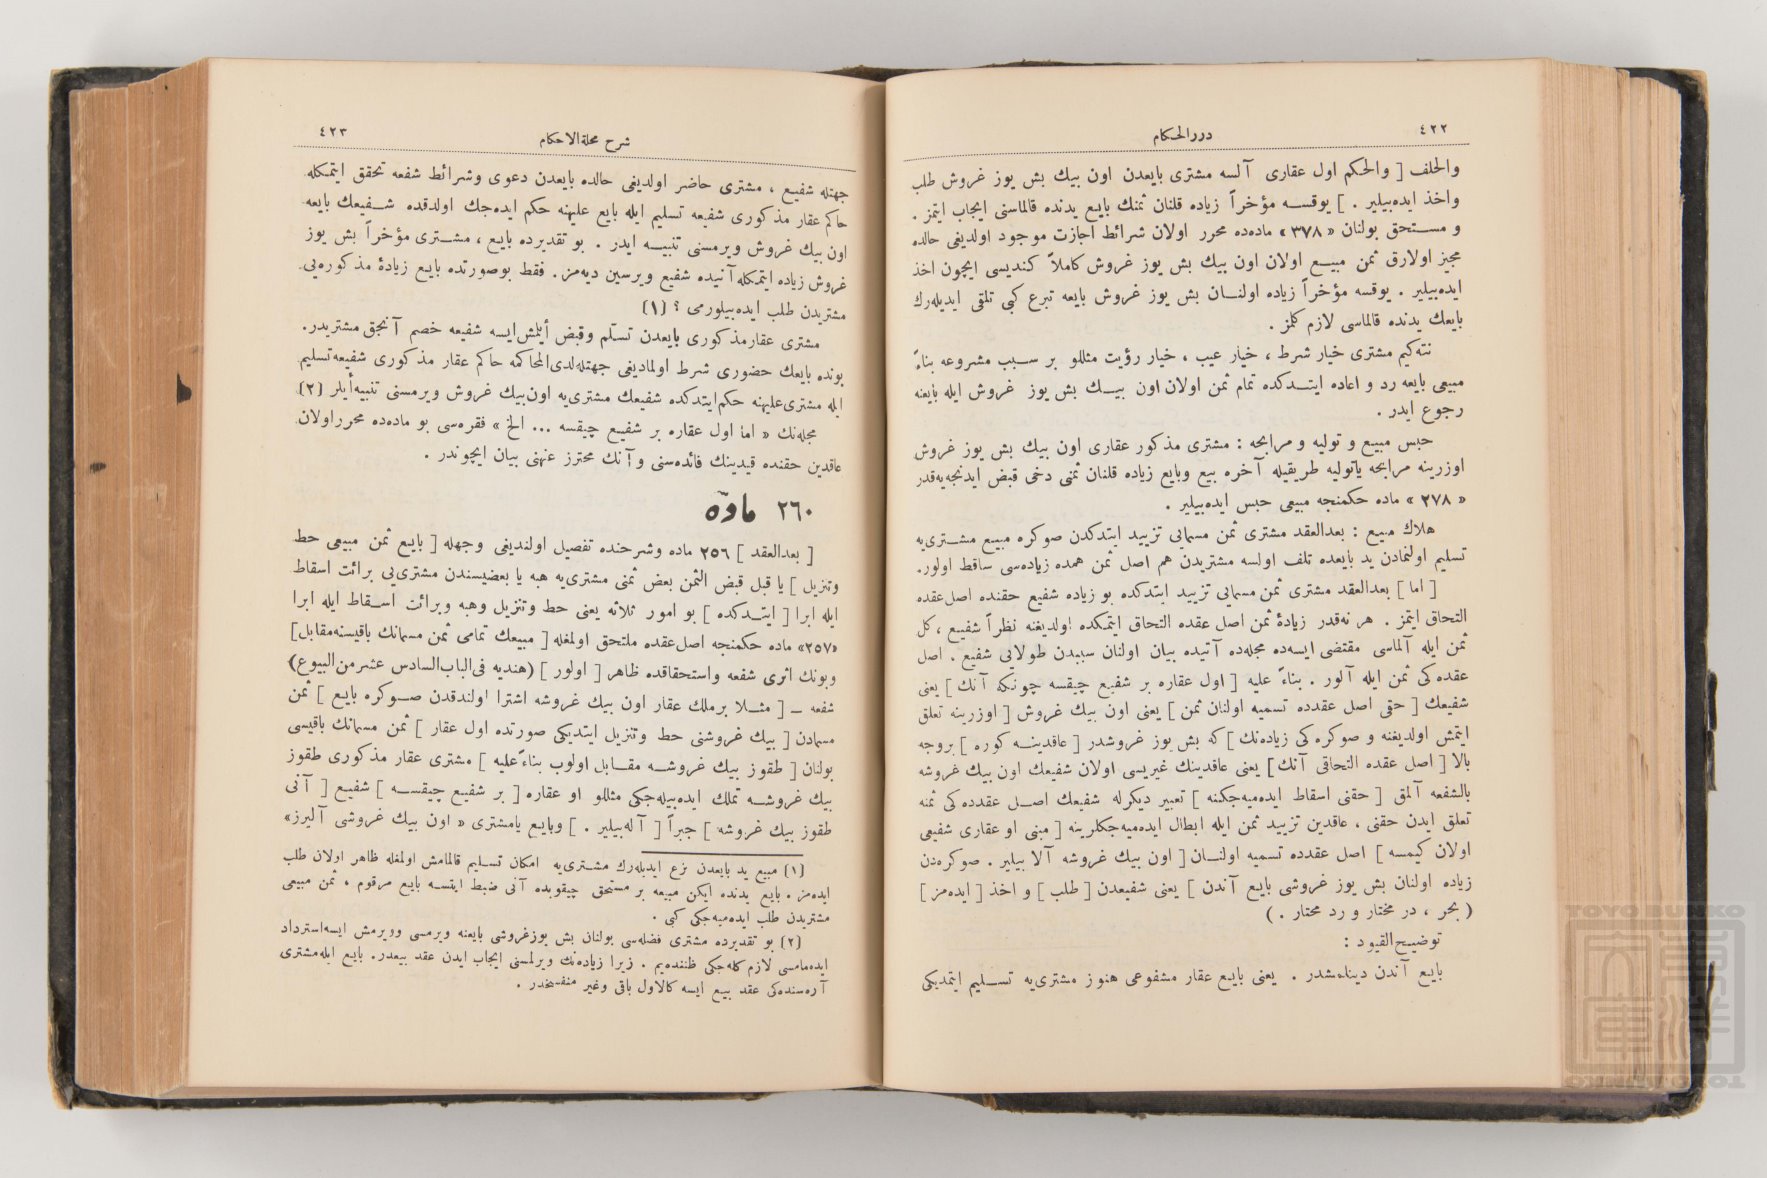 ٤٢٢
دررالحكام
والخلف [ والحكم اول عقارى آلسه مشترى بايعدن اون بيك بش يوز غروش طلب
واخذ ايده‌بيلير . ] يوقســه مؤخراً زياده قلنان ثمنك بايع يدنده قالماسنى ايجاب ايتمز .
و مســتحق بولنان « ٣٧٨ » ماده‌ده محرر اولان شرائط اجازت موجود اولديغى حالده
مجيز اولارق ثمن مبيــع اولان اون بيك بش يوز غروش كاملاً كنديسى ايچون اخذ
ايده‌بيلير . يوقسه مؤخراً زياده اولنــان بش يوز غروش بايعه تبرع كبى تلقى ايديله‌رك
بايعك يدنده قالماسى لازم كلمز .
نته‌كيم مشترى خيار شرط ، خيار عيب ، خيار رؤيت مثللو بر ســبب مشروعه بناءً
مبيعى بايعه رد و اعاده ايتــدكده تمام ثمن اولان اون بيــك بش يوز غروش ايله بايعنه
رجوع ايدر .
حبس مبيع و توليه و مرابحه : مشترى مذكور عقارى اون بيك بش يوز غروش
اوزرينه مرابحه ياتوليه طريقيله آخره بيع وبايع زياده قلنان ثمنى دخى قبض ايدنجه‌يه‌قدر
« ٢٧٨ » ماده حكمنجه مبيعى حبس ايده‌بيلير .
هلاك مبيع : بعدالعقد مشترى ثمن مسمايى تزييد ايتدكدن صوكره مبيع مشــترى‌يه
تسليم اولنمادن يد بايعده تلف اولسه مشتريدن هم اصل ثمن همده زياده‌سى ساقط اولور.
[ اما ] بعدالعقد مشترى ثمن مسمايى تزييد ايتدكده بو زياده شفيع حقنده اصل‌عقده
التحاق ايتمز . هر نه‌قدر زيادۀ ثمن اصل عقده التحاق ايتمكده اولديغنه نظراً شفيع ، كل
ثمن ايله آلماسى مقتضى ايسه‌ده مجله‌ده آتيده بيان اولنان سببدن طولايى شفيع . اصل
عقده‌كى ثمن ايله آلور . بناءً عليه [ اول عقاره بر شفيع چيقسه چونكه آنك ] يعنى
شفيعك [ حقى اصل عقدده تسميه اولنان ثمن ] يعنى اون بيك غروش [ اوزرينه تعلق
ايتمش اولديغنه و صوكره‌كى زياده‌نك ] كه بش يوز غروشدر [ عاقدينــه كوره ] بروجه
بالا [ اصل عقده التحاقى آنك] يعنى عاقدينك غيريسى اولان شفيعك اون بيك غروشه
بالشفعه آلمق [ حقنى اسقاط ايده‌ميه‌جكنه ] تعبير ديكرله شفيعك اصــل عقدده‌كى ثمنه
تعلق ايدن حقنى ، عاقدين تزييد ثمن ايله ابطال ايده‌ميه‌جكلرينه [ مبنى او عقارى شفيعى
اولان كيمسه ] اصل عقدده تسميه اولنــان [ اون بيك غروشه آلا بيلير . صوكره‌دن
زياده اولنان بش يوز غروشى بايع آندن ] يعنى شفيعدن [ طلب ] و اخذ [ ايده‌مز ]
( بحر ، در مختار و رد محتار . )
توضيح‌القيود :
بايع آندن دينلمشدر . يعنى بايع عقار مشفوعى هنوز مشترى‌يه تســليم ايتمديكى
٤٢٣
شرح مجلةالاحكام
جهتله شفيع ، مشترى حاضر اولديغى حالده بايعدن دعوى وشرائط شفعه تحقق ايتمكله
حاكم عقار مذكورى شفيعه تسليم ايله بايع عليهنه حكم ايده‌جك اولدقده شــفيعك بايعه
اون بيك غروش ويرمسنى تنبيــه ايدر . بو تقديرده بايع ، مشــترى مؤخراً بش يوز
غروش زياده ايتمكله آنيده شفيع ويرسين ديه‌مز . فقط بوصورتده بايع زيادۀ مذكوره‌يى
مشتريدن طلب ايده‌بيلورمى ؟ (١)
مشترى عقارمذكورى بايعدن تسلم وقبض أيلمش‌ايسه شفيعه خصم آنجق مشتريدر.
بونده بايعك حضورى شرط اولماديغى جهتله‌لدى‌المحاكمه حاكم عقار مذكورى شفيعه‌تسليم
ايله مشترى‌عليهنه حكم‌ايتدكده شفيعك مشترى‌يه اون‌بيك غروش ويرمسنى تنبيه‌أيلر (٢)
مجله‌نك « اما اول عقاره بر شفيع چيقسه ... الخ » فقره‌سى بو ماده‌ده محرراولان
عاقدين حقنده قيدينك فائده‌سنى وآنك محترز عنهنى بيان ايچوندر .
٢٦٠ مادّه
[ بعدالعقد ] ٢٥٦ ماده وشرحنده تفصيل اولنديغى وجهله [ بايع ثمن مبيعى حط
وتنزيل ] يا قبل قبض الثمن بعض ثمنى مشترى‌يه هبه يا بعضيسندن مشترى‌يى برائت اسقاط
ايله ابرا [ ايتــدكده ] بو امور ثلاثه يعنى حط وتنزيل وهبه وبرائت اســقاط ايله ابرا
«٢٥٧» ماده حكمنجه اصل‌عقده ملتحق اولمغله [ مبيعك تمامى ثمن مسمانك باقيسنه‌مقابل]
وبونك اثرى شفعه واستحقاقده ظاهر [ اولور ] (هنديه فى‌الباب‌السادس عشرمن‌البيوع)
شفعه ـ [ مثــلا برملك عقار اون بيك غروشه اشترا اولندقدن صــوكره بايع ] ثمن
مسمادن [ بيك غروشنى حط وتنزيل ايتديكى صورتده اول عقار ] ثمن مسمانك باقيسى
بولنان [ طقوز بيك غروشــه مقــابل اولوب بناءً‌عليه ] مشترى عقار مذكورى طقوز
بيك غروشــه تملك ايده‌بيله‌جكى مثللو او عقاره [ بر شفيع چيقســه ] شفيع [ آنى
طقوز بيك غروشه ] جبراً [ آله‌بيلير . ] وبايع يامشترى « اون بيك غروشى آليرز»
(١) مبيع يد بايعدن نزع ايديله‌رك مشترى‌يه امكان تسليم قالمامش اولمغله ظاهر اولان طلب
ايده‌مز . بايع يدنده ايكن مبيعه بر مستحق چيقوبده آنى ضبط ايتسه بايع مرقوم ، ثمن مبيعى
مشتريدن طلب ايده‌ميه‌جكى كبى .
(٢) بو تقديرده مشترى فضله‌سى بولنان بش يوزغروشى بايعنه ويرمسى وويرمش ايسه‌استرداد
ايده‌مامسى لازم كله‌جكى ظننده‌يم . زيرا زياده‌نك ويرلمسنى ايجاب ايدن عقد بيعدر. بايع ايله‌مشترى
آره‌سنده‌كى عقد بيع ايسه كالاول باقى وغير منفسخدر .
TOYO BUNKO